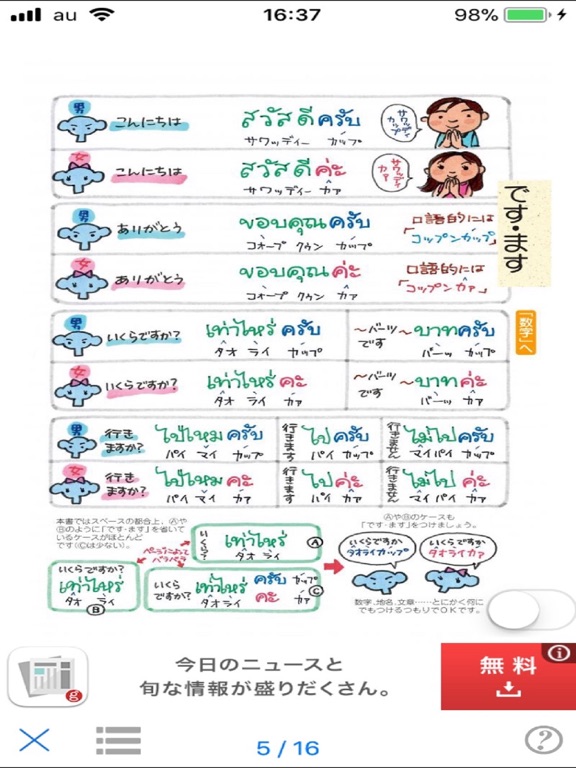 au 16:37 98%
男 こんにちは สวัสดีครับ サワッディーカップ
サワッディー カップ
女 こんにちは สวัสดีค่ะ サワッディカァ
サワッディー カァ
です・ます
男 ありがとう ขอบคุณครับ 口語的には
コォープ クゥン カップ 「コップンカップ」
女 ありがとう ขอบคุณค่ะ 口語的には
コォープ クゥン カァ 「コップンカァ」
「数字」へ
男 いくらですか? เท่าไหร่ครับ 〜バーツです 〜บาทครับ
タオ ライ カップ バーツ カップ
女 いくらですか? เท่าไหร่คะ 〜バーツです 〜บาทค่ะ
タオ ライ カァ バーツ カァ
男 行きますか? ไปไหมครับ 行きます ไปครับ 行きません ไม่ไปครับ
パイ マイ カップ パイ カップ マイ パイ カップ
女 行きますか? ไปไหมคะ 行きます ไปค่ะ 行きません ไม่ไปค่ะ
パイ マイ カァ パイ カァ マイ パイ カァ
本書ではスペースの都合上、Ⓐや
Ⓑのように「です・ます」を省いて
いるケースがほとんど
です(Ⓒは少ない)。
ページによってバラバラ
いくら? เท่าไหร่ Ⓐ
タオ ライ
いくらですか?
เท่าไหร่
タオ ライ
Ⓑ
いくらですか? เท่าไหร่ ครับ カップ
タオ ライ คะ カァ Ⓒ
ⒶやⒷのケースも
「です・ます」をつけましょう。
いくらですか
タオライカップ
いくらですか
タオライカァ
数字、地名、文章……とにかく何に
でもつけるつもりでOKです。
今日のニュースと
旬な情報が盛りだくさん。
無料
g
5 / 16
?